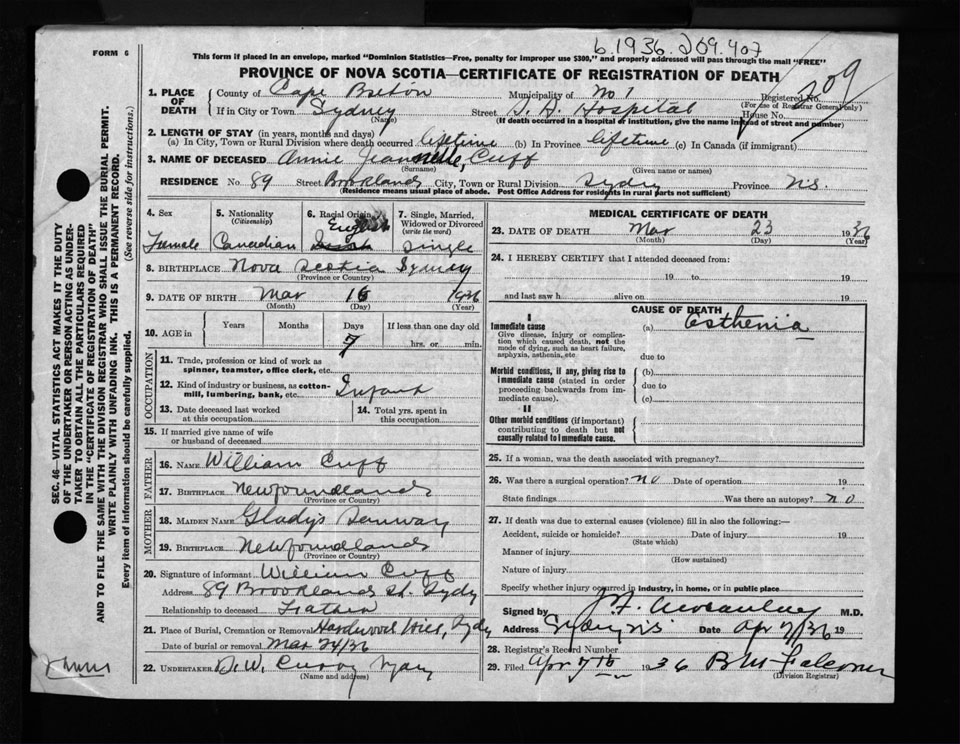 6.1936.209.407
FORM 6
This form if placed in an envelope, marked "Dominion Statistics—Free, penalty for improper use $300," and properly addressed will pass through the mail "FREE"
PROVINCE OF NOVA SCOTIA—CERTIFICATE OF REGISTRATION OF DEATH
209
1. PLACE OF DEATH
County of Cape Breton Municipality of No 1 Registered No.
(For use of Registrar General only)
If in City or Town Sydney Street Hospital House No.
(Name) (If death occurred in a hospital or institution, give the name instead of street and number)
2. LENGTH OF STAY (in years, months and days)
(a) In City, Town or Rural Division where death occurred lifetime (b) In Province lifetime (c) In Canada (if immigrant)
3. NAME OF DECEASED Annie Jeannette, Cuff
(Surname) (Given name or names)
RESIDENCE No. 89 Street Brooklands City, Town or Rural Division Sydney Province N.S.
(Residence means usual place of abode. Post Office Address for residents in rural parts not sufficient)
4. Sex Female
5. Nationality (Citizenship) Canadian
6. Racial Origin English
7. Single, Married, Widowed or Divorced (write the word) Single
8. BIRTHPLACE Nova Scotia Sydney
(Province or Country)
9. DATE OF BIRTH Mar 16 1936
(Month) (Day) (Year)
10. AGE in Years Months Days If less than one day old
7 hrs. or min.
OCCUPATION
11. Trade, profession or kind of work as spinner, teamster, office clerk, etc.
12. Kind of industry or business, as cotton-mill, lumbering, bank, etc. Infant
13. Date deceased last worked at this occupation
14. Total yrs. spent in this occupation
15. If married give name of wife or husband of deceased
FATHER
16. NAME William Cuff
17. BIRTHPLACE Newfoundland
(Province or Country)
MOTHER
18. MAIDEN NAME Gladys
19. BIRTHPLACE Newfoundland
(Province or Country)
20. Signature of informant William Cuff
Address 89 Brooklands St. Sydney
Relationship to deceased Father
21. Place of Burial, Cremation or Removal Hardwood Hill, Sydney
Date of burial or removal Mar 24/36
22. UNDERTAKER D.W. Curry Sydney
(Name and address)
MEDICAL CERTIFICATE OF DEATH
23. DATE OF DEATH Mar 23 1936
(Month) (Day) (Year)
24. I HEREBY CERTIFY that I attended deceased from:
19 to 19
and last saw h alive on 19
CAUSE OF DEATH
I
Immediate cause
Give disease, injury or complication which caused death, not the mode of dying, such as heart failure, asphyxia, asthenia, etc
(a) Esthenia
due to
Morbid conditions, if any, giving rise to immediate cause (stated in order proceeding backwards from immediate cause).
(b)
due to
(c)
II
Other morbid conditions (if important) contributing to death but not causally related to immediate cause.
25. If a woman, was the death associated with pregnancy?
26. Was there a surgical operation? no Date of operation 19
State findings Was there an autopsy? no
27. If death was due to external causes (violence) fill in also the following:—
Accident, suicide or homicide? Date of injury 19
(State which)
Manner of injury
(How sustained)
Nature of injury
Specify whether injury occurred in industry, in home, or in public place
Signed by M.D.
Address Sydney N.S. Date Apr 7/36 19
28. Registrar's Record Number
29. Filed Apr 7th 1936 B M Falconer
(Division Registrar)
SEC. 46—VITAL STATISTICS ACT MAKES IT THE DUTY
OF THE UNDERTAKER OR PERSON ACTING AS UNDER-
TAKER TO OBTAIN ALL THE PARTICULARS REQUIRED
IN THE "CERTIFICATE OF REGISTRATION OF DEATH"
AND TO FILE THE SAME WITH THE DIVISION REGISTRAR WHO SHALL ISSUE THE BURIAL PERMIT.
WRITE PLAINLY WITH UNFADING INK. THIS IS A PERMANENT RECORD.
Every item of information should be carefully supplied. (See reverse side for instructions)